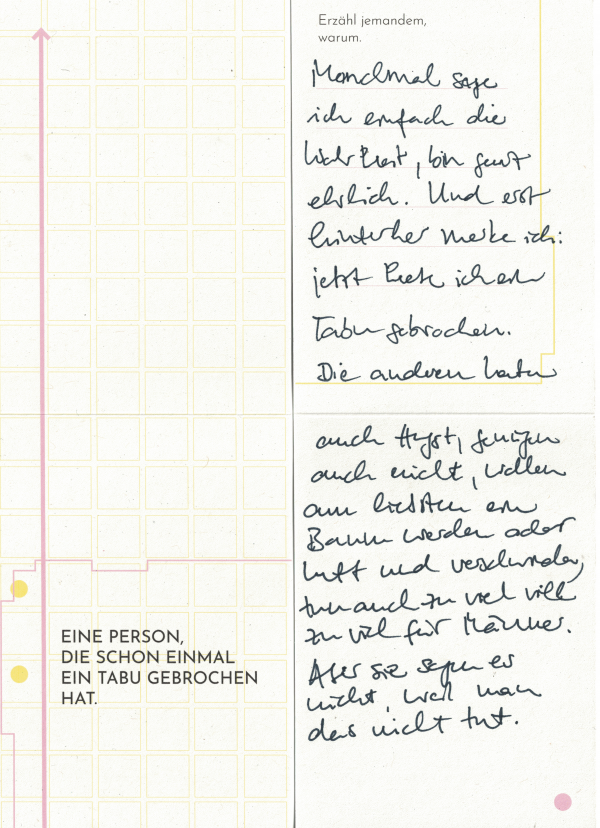 Erzähl jemandem,
warum.
Manchmal sage
ich einfach die
Wahrheit, bin ganz
ehrlich. Und erst
hinterher merke ich:
jetzt habe ich ein
Tabu gebrochen.
Die anderen haben
auch Angst, genügen
auch nicht, wollen
am liebsten ein
Baum werden oder
Luft und verschwinden,
tun auch zu viel viel
zu viel für Männer.
Aber sie sagen es
nicht, weil man
das nicht tut.
EINE PERSON,
DIE SCHON EINMAL
EIN TABU GEBROCHEN
HAT.